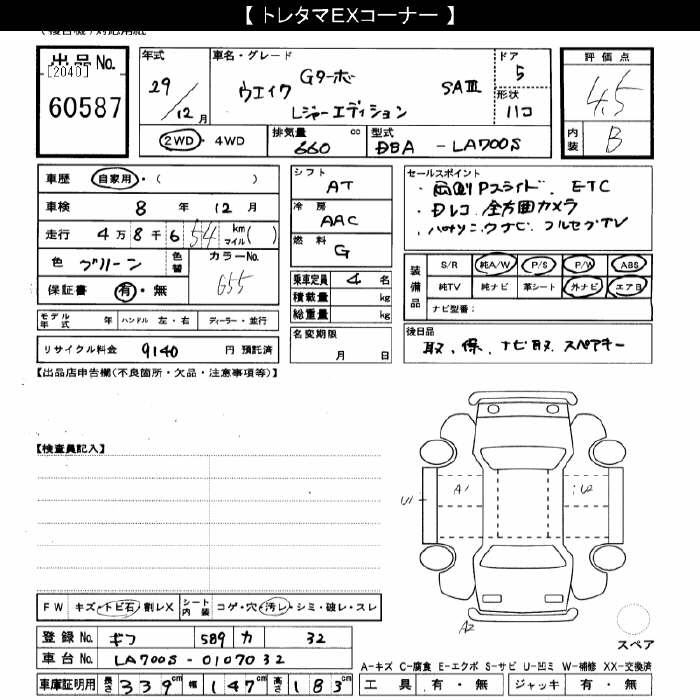 【 トレタマEXコーナー 】
出品No.
[2040]
60587
年式
29/12月
車名・グレード
ウエイク Gターボ SAⅢ
レジャーエディション
ドア
5
形状
ハコ
評価点
4.5
内装 B
2WD・4WD
排気量 660 cc
型式 DBA - LA700S
車歴 自家用・( )
車検 8 年 12 月
走行 4万8千654 km マイル( )
色 グリーン 色替
カラーNo. G55
保証書 有・無
モデル年式 年 ハンドル 左・右 ディーラー・並行
リサイクル料金 9140 円 預託済
シフト AT
冷房 AAC
燃料 G
乗車定員 4 名
積載量 kg
総重量 kg
名変期限 月 日
セールスポイント
・両側Pスライド、ETC
・Dレコ、全方囲カメラ
・パナソニックナビ フルセグTV
装備品
S/R 純A/W P/S P/W ABS
純TV 純ナビ 革シート 外ナビ エアB
ナビ型番:
後日品
取、保、ナビ取、スペアキー
【出品店申告欄(不良箇所・欠品・注意事項等)】
【検査員記入】
U1 A1 U2
A2
FW キズ・トビ石・割レX
シート内装 コゲ・穴・汚レ・シミ・破レ・スレ
登録No. ギフ 589 カ 32
車台No. LA700S - 0107032
車庫証明用 長さ 339cm 幅 147cm 高さ 183cm
スペア
A-キズ C-腐食 E-エクボ S-サビ U-凹ミ W-補修 XX-交換済
工具 有・無 ジャッキ 有・無